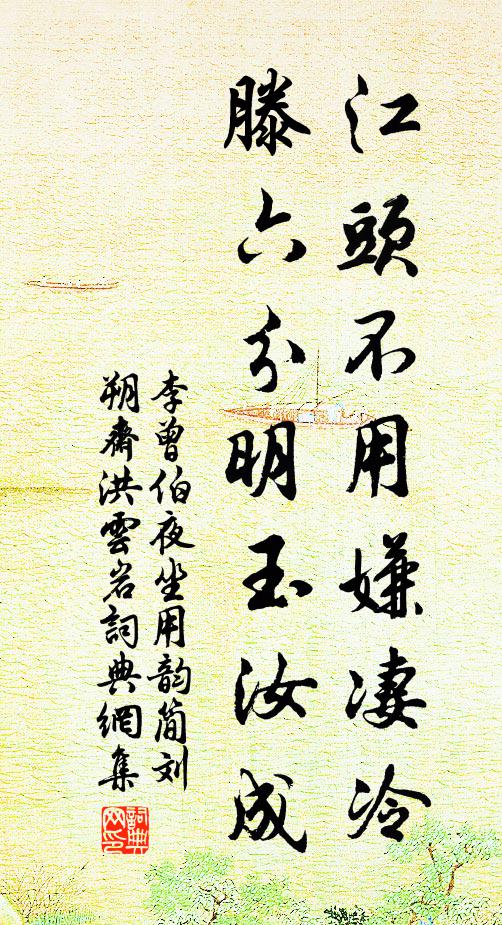 江頭不用嫌凄冷
滕六分明玉汝成
李曾伯夜坐用韵简刘
朔齋洪雲岩詞典網集
詞典
网印